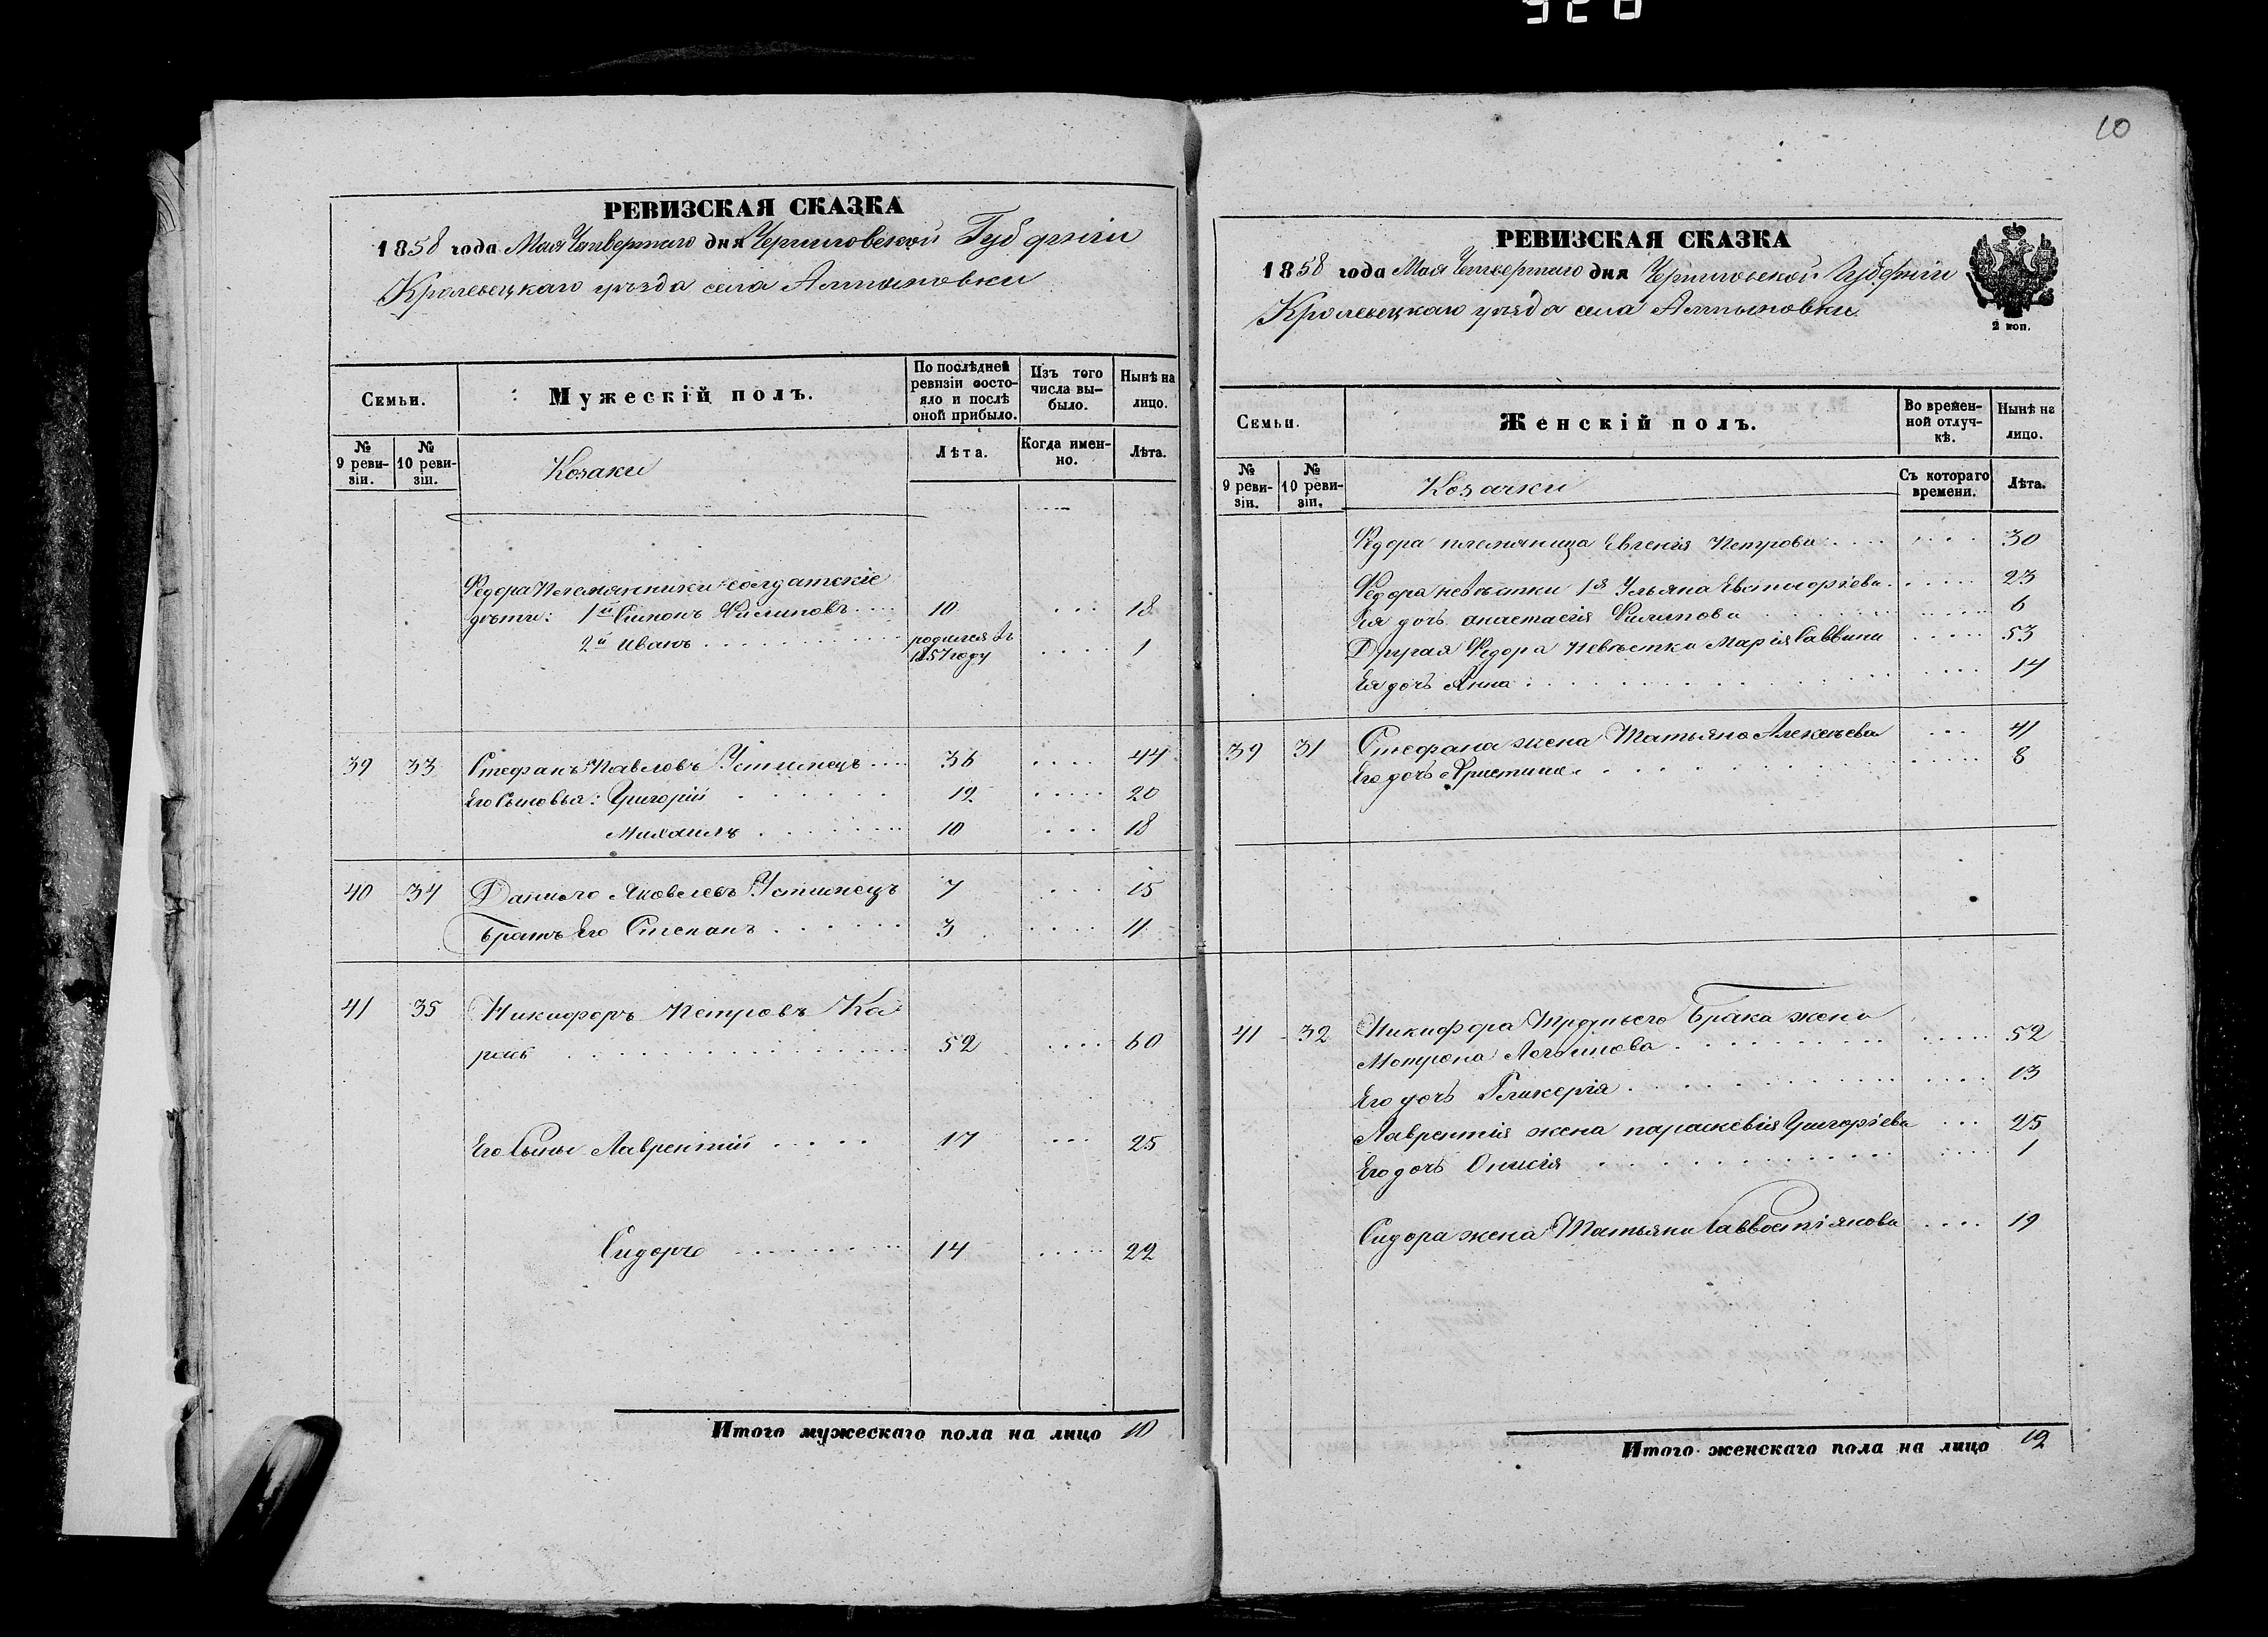 10
РЕВИЗСКАЯ СКАЗКА
1858 года Мая Четвертаго дня Черниговской Губерніи
Кролевецкаго уѣзда села Алтыновки
Семьи.
Мужескій полъ.
По послѣдней ревизіи состояло и послѣ оной прибыло.
Изъ того числа выбыло.
Нынѣ на лицо.
№ 9 ревизіи.
№ 10 ревизіи.
Козаки
Лѣта.
Когда именно.
Лѣта.
Федора Племянники солдатскіе
дѣти: 1й Симонъ Филиповъ 10 18
2й Иванъ родился въ 1857 году 1
39 33 Стефанъ Павловъ Устимецъ 36 44
Его Сыновья: Григорій 12 20
Михаилъ 10 18
40 34 Данило Яковлевъ Устимецъ 7 15
Братъ Его Степанъ 3 11
41 35 Никифоръ Петровъ Ко
52 60
Его Сыны Лаврентій 17 25
Сидоръ 14 22
Итого мужескаго пола на лицо 10
РЕВИЗСКАЯ СКАЗКА
1858 года Мая Четвертаго дня Черниговской Губерніи
Кролевецкаго уѣзда села Алтыновки
2 коп.
Семьи.
Женскій полъ.
Во временной отлучкѣ.
Нынѣ на лицо.
№ 9 ревизіи.
№ 10 ревизіи.
Козачки
Съ котораго времени.
Лѣта.
Федора племяница Евгенія Петрова 30
Федора невѣстки 1я Ульяна Евстигорѣева 23
Ея дочь Анастасія Филипова 6
Другая Федора Невѣстка Марія Саввина 53
Ея дочь Анна 14
39 31 Стефана жена Татьяна Алексѣева 41
Его дочь Христина 8
41 32 Никифора Третьего Брака жена
Мотрона Логвинова 52
Его дочь Гликерія 13
Лаврентія жена параскевія Григорѣева 25
Его дочь Онисія 1
Сидора жена Татьяна Саввостіянова 19
Итого женскаго пола на лицо 12